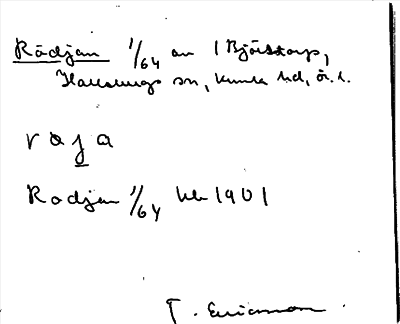 Rådjan 1/64 au i Björktorp,
Hallsbergs sn, Kumla hd, ör. l.
r a j a
Radjan 1/64 hb 1901
T. Ericsson